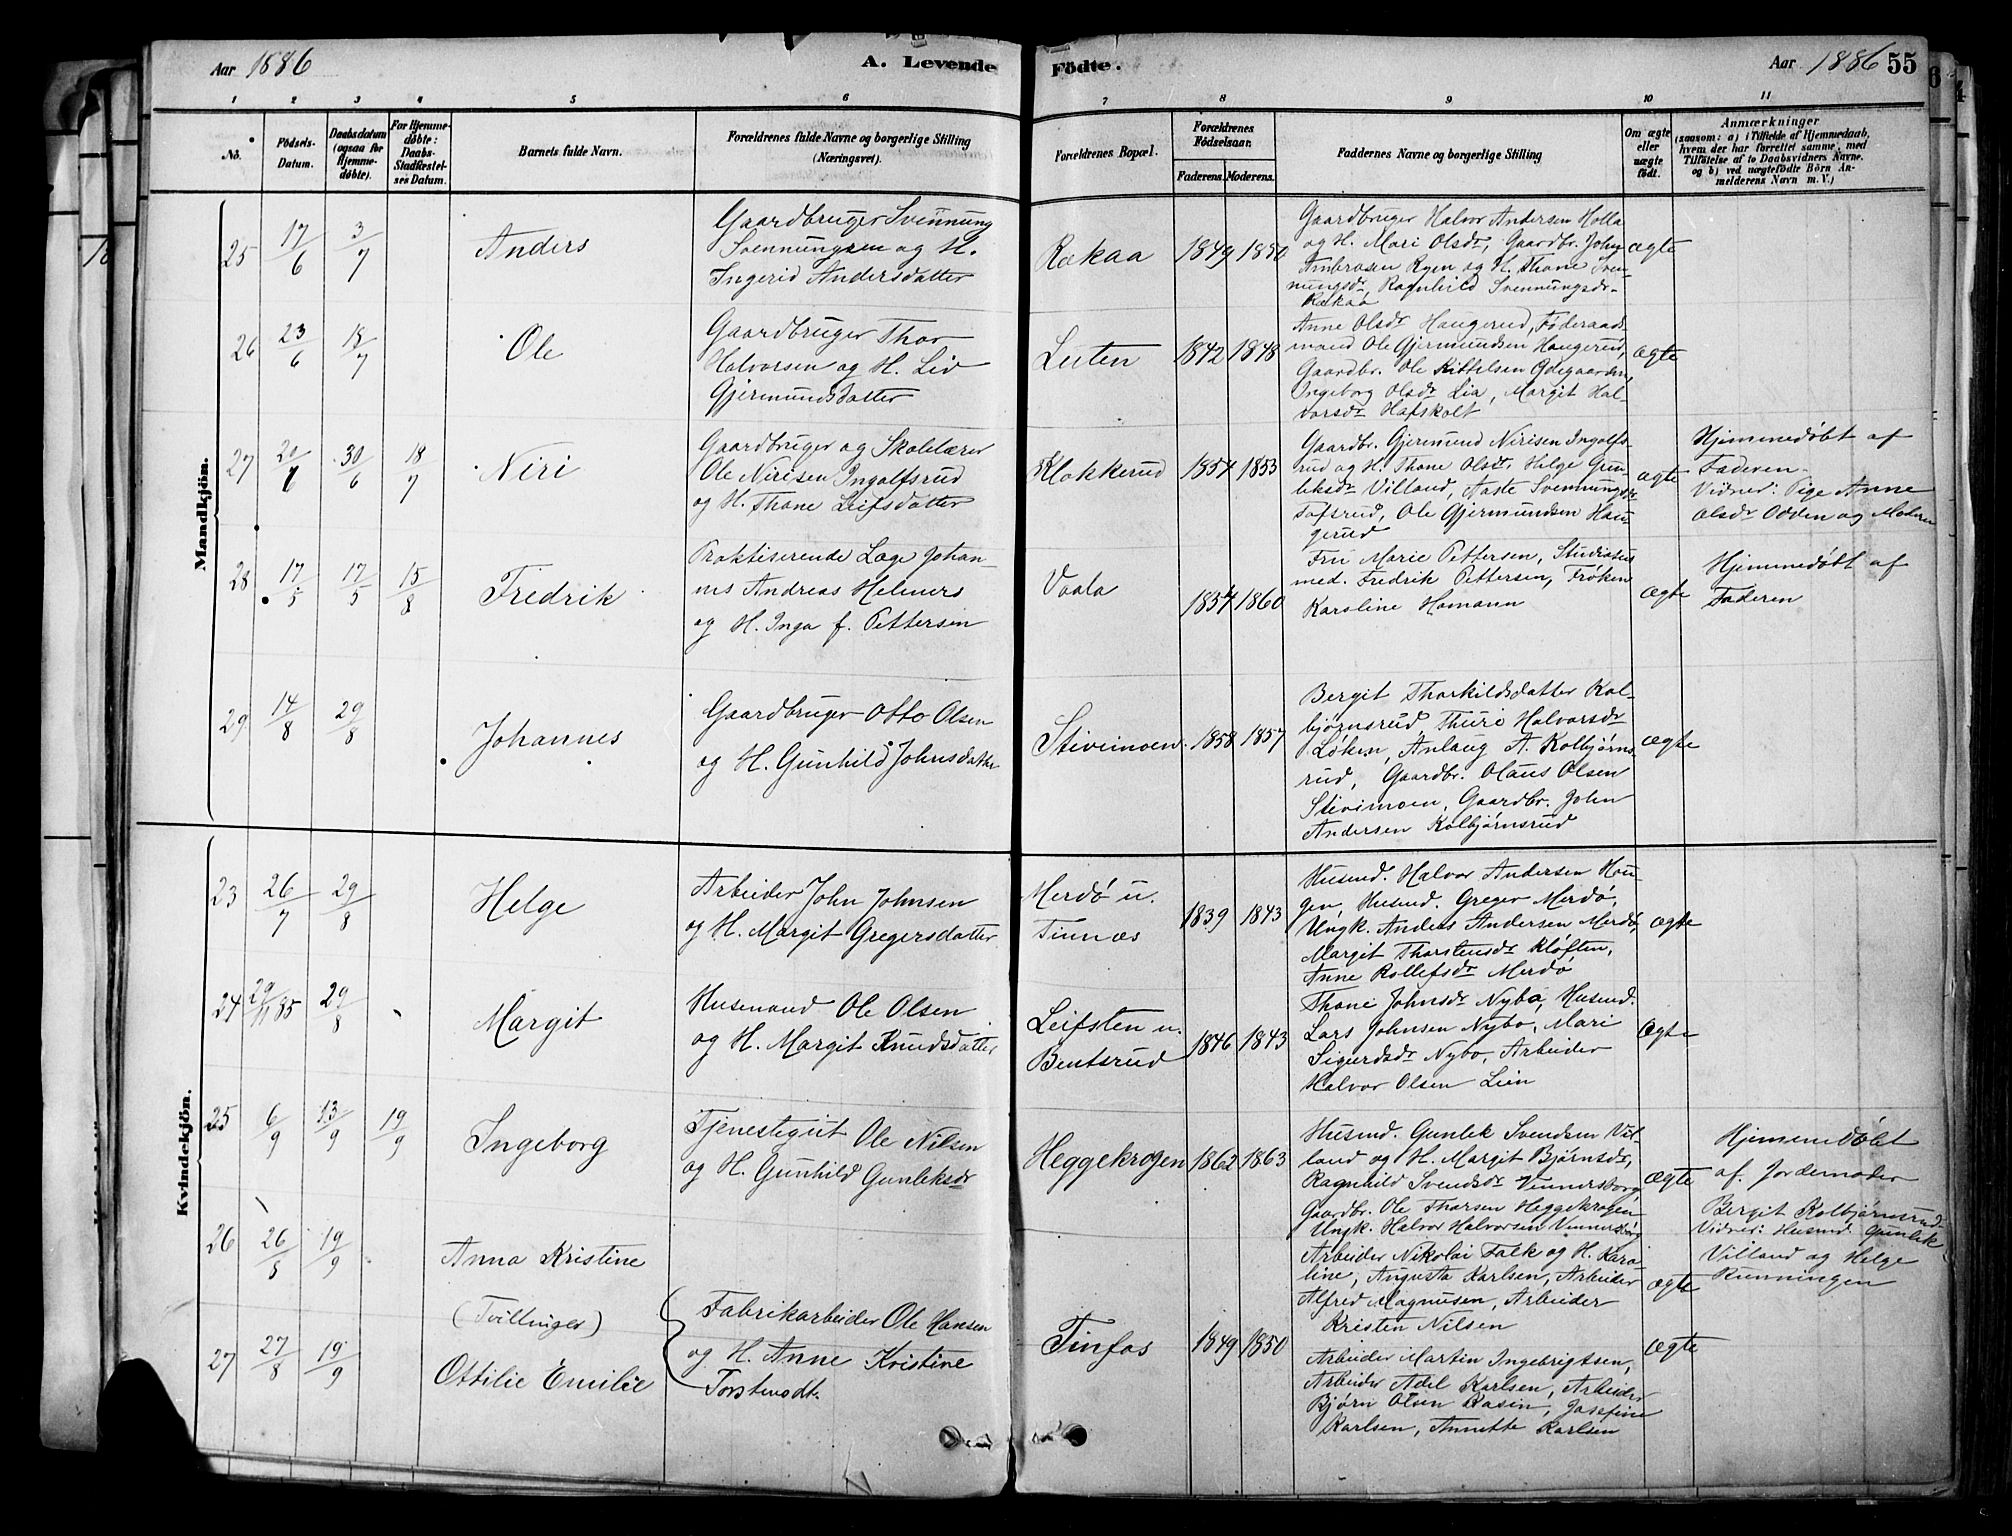 Aar 1886
A. Levende Födte.
Aar 1886 55
1 2 3 4 5 6 7 8 9 10 11
No.
Födsels-
Datum.
Daabsdatum
(ogsaa for
Hjemme-
döbte).
For Hjemme-
döbte:
Daabs-
Stadfæstel-
ses Datum.
Barnets fulde Navn.
Forældrenes fulde Navne og borgerlige Stilling
(Næringsvei).
Forældrenes Bopæl.
Forældrenes
Födselsaar.
Faderens. Moderens.
Faddernes Navne og borgerlige Stilling
Om ægte
eller
uægte
födt.
Anmærkninger
(saasom: a) i Tilfælde af Hjemmedaab,
hvem der har forrettet samme, med
Tilföielse af to Daabsvidners Navne,
og b) ved uægtefödte Börn An-
melderens Navn m. V.)
Mandkjön.
25 17/6 3/7
Anders
Gaardbruger Svennung
Svennungsen og H.
Ingerid Andersdatter
Rækaa
1849 1850
Gaardbruger Halvor Andersen Holla
og H. Mari Olsdr, Gaardbr. John
Ambrosen Ryen og H. Thone Sven-
nungsdr, Ragnhild Svennungsdr
Rækaa
ægte
26 23/6 18/7
Ole
Gaardbruger Thor
Halvorsen og H. Liv
Gjermundsdatter
Luten
1842 1848
Anne Olsdr Haugerud, Føderaads-
mand Ole Gjermundsen Haugerud,
Gaardbr. Ole Kittelsen Ødegaarden,
Ingeborg Olsdr Lia, Margit Hal-
vorsdr Hafskolt
ægte
27 30/6 18/7
Niri
Gaardbruger og Skolelærer
Ole Nirisen Ingolfsrud
og H. Thone Leifsdatter
Klokkerud
1857 1853
Gaardbr. Gjermund Nirisen Ingolfs-
rud og H. Thone Olsdr, Helge Gun-
leksdr Villand, Aaste Svennungsdr
Tofsrud, Ole Gjermundsen Hau-
gerud
ægte
Hjemmedøbt af
Faderen.
Vidner: Pige Anne
Olsdr Odden og Moderen
28 17/5 17/5 15/8
Fredrik
Praktiserende Læge Johan-
nes Andreas Helmers
og H. Inga f. Pettersen
Vaala
1857 1860
Fru Marie Pettersen, Studiosus
med. Fredrik Pettersen, Frøken
Karoline Homann
ægte
Hjemmedøbt af
Faderen
29 14/8 29/8
Johannes
Gaardbruger Otto Olsen
og H. Gunhild Johnsdatter
Stivimoen
1858 1857
Bergit Thorkildsdatter Kol-
bjørnsrud Thuri Halvorsdr
Løken, Anlaug A. Kolbjørns-
rud, Gaardbr. Olaus Olsen
Stivimoen, Gaardbr. John
Andersen Kolbjørnsrud
ægte
Kvindekjön.
23 26/7 29/8
Helge
Arbeider John Johnsen
og H. Margit Gregersdatter
Merdø u.
Tinnæs
1839 1843
Husmd. Halvor Andersen Hau-
gen, Husmd. Greger Merdø,
Ungk. Anders Andersen Merdø,
Margit Thorstensdr Kløften,
Anne Rollefsdr Merdø
ægte
24 29/11 85 29/8
Margit
Husmand Ole Olsen
og H. Margit Knudsdatter
Leifsten u.
Bentsrud
1846 1843
Thone Johnsdr Nybø, Husmd.
Lars Johnsen Nybø, Mari
Sigurdsdr Nybø, Arbeider
Halvor Olsen Lien
ægte
25 6/9 13/9 19/9
Ingeborg
Tjenestegut Ole Nilsen
og H. Gunhild Gunleksdr
Heggekrogen
1862 1863
Husmd. Gunlek Svendsen Vil-
land og H. Margit Bjørnsdr,
Ragnhild Svendsdr Vinnersborg
Gaardbr. Ole Thorsen Heggekrogen
Ungk. Halvor Halvorsen Vinnersborg
ægte
Hjemmedøbt
af Jordemoder
Bergit Kolbjørnsrud
Vidner: Husmd. Gunlek
Villand og Helge
Runningen
26 26/8 19/9
Anna Kristine
(Tvillinger)
Arbeider Nikolai Falk og H. Karo-
line, Augusta Karlsen, Arbeider
Alfred Magnusen, Arbeider
Kristen Nilsen
ægte
27 27/8 19/9
Ottilie Emilie
Fabrikarbeider Ole Hansen
og H. Anne Kristine
Torstensdt.
Tinfos
1849 1850
Arbeider Martin Ingebrigtsen,
Arbeider Adel Karlsen, Arbeider
Bjørn Olsen Rasin, Josefine
Karlsen, Annette Karlsen
ægte